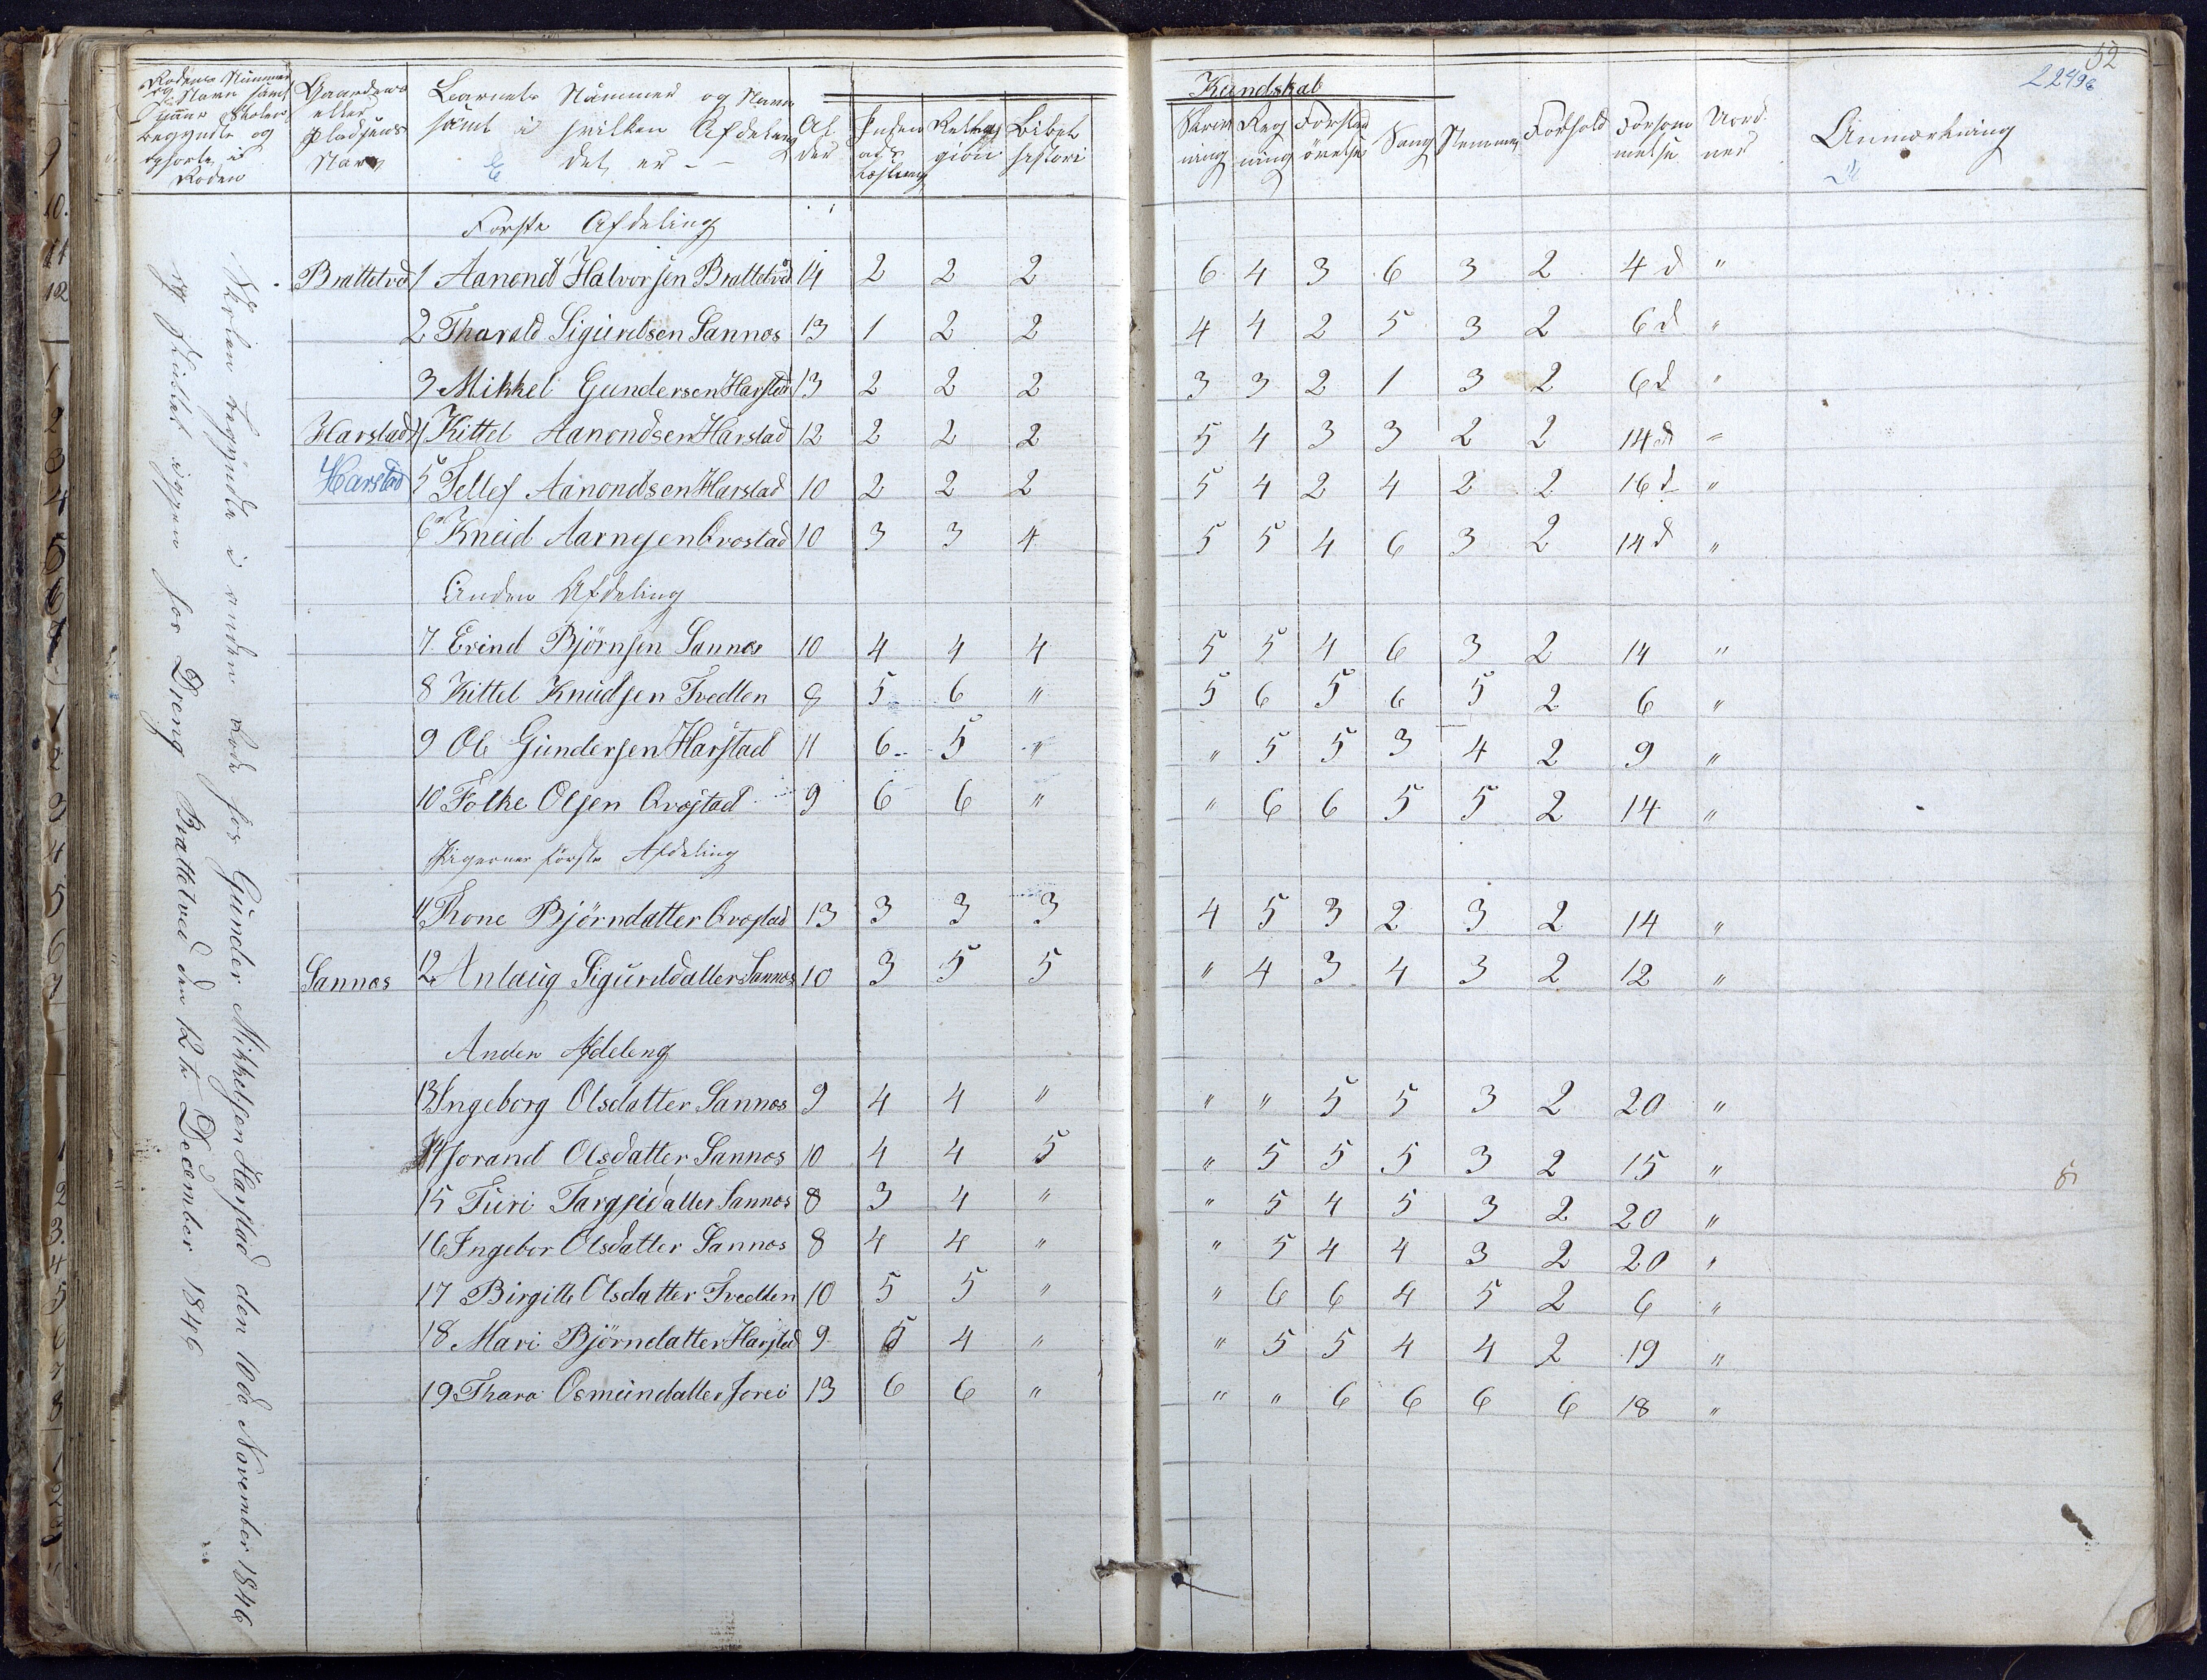 52
22496
Rodens Nummer
og Navn samt
naar Skolen
begyndte og
ophørte i
Roden
Gaardens
eller
Pladsens
Navn
Barnets Nummer og Navn
samt i hvilken Afdeling
det er –
Al
der
Inden
ads
Læsning
Relig
gion
Bibel
histori
Kundskab
Skriv
ning
Reg
ning
Forstands
øvelse
Sang
Nemme
Forhold
Forsøm
melse
Uord
ner
Anmærkning
Skolen begyndte i anden Rode hos Gunder Mikkelsen Harstad den 10de November 1846
og sluttet igjen hos Dreng Brattetved den 12te December 1846
Første Afdeling
Brattetved 1 Aanond Halvorsen Brattetved 14 2 2 2 6 4 3 6 3 2 4 d "
2 Tharald Sigurdsen Sannes 13 1 2 2 4 4 2 5 3 2 6 d "
3 Mikkel Gundersen Harstad 13 2 2 2 3 3 2 1 3 2 6 d "
Harstad 4 Kittel Aanondsen Harstad 12 2 2 2 5 4 3 3 2 2 14 d "
Harstad 5 Tellef Aanondsen Harstad 10 2 2 2 5 4 2 4 2 2 16 d "
6 Kneid Aarnesen Qvostad 10 3 3 4 5 5 4 6 3 2 14 d "
Anden Afdeling
7 Evind Bjørnsen Sannes 10 4 4 4 5 5 4 6 3 2 14 "
8 Kittel Knudsen Tvedten 8 5 6 " 5 6 5 6 5 2 6 "
9 Ole Gundersen Harstad 11 6 5 " " 5 5 3 4 2 9 "
10 Folke Olsen Qvostad 9 6 6 " " 6 6 5 5 2 14 "
Pigernes første Afdeling
11 Thone Bjørndatter Qvostad 13 3 3 3 4 5 3 2 3 2 14 "
Sannes 12 Anlaug Sigurddatter Sannes 10 3 5 5 " 4 3 4 3 2 12 "
Anden Afdeleng
13 Ingeborg Olsdatter Sannes 9 4 4 " " " 5 5 3 2 20 "
14 Jorand Olsdatter Sannes 10 4 4 5 " 5 5 5 3 2 15 "
15 Turi Targjeidatter Sannes 8 3 4 " " 5 4 5 3 2 20 "
16 Ingebor Olsdatter Sannes 8 4 4 " " 5 4 4 3 2 20 "
17 Birgitte Olsdatter Tvedten 10 5 5 " " 6 6 4 5 2 6 "
18 Mari Bjørndatter Harstad 9 5 4 " " 5 5 4 4 2 19 "
19 Thara Osmundatter Jorei 13 6 6 " " " 6 6 6 6 18 "